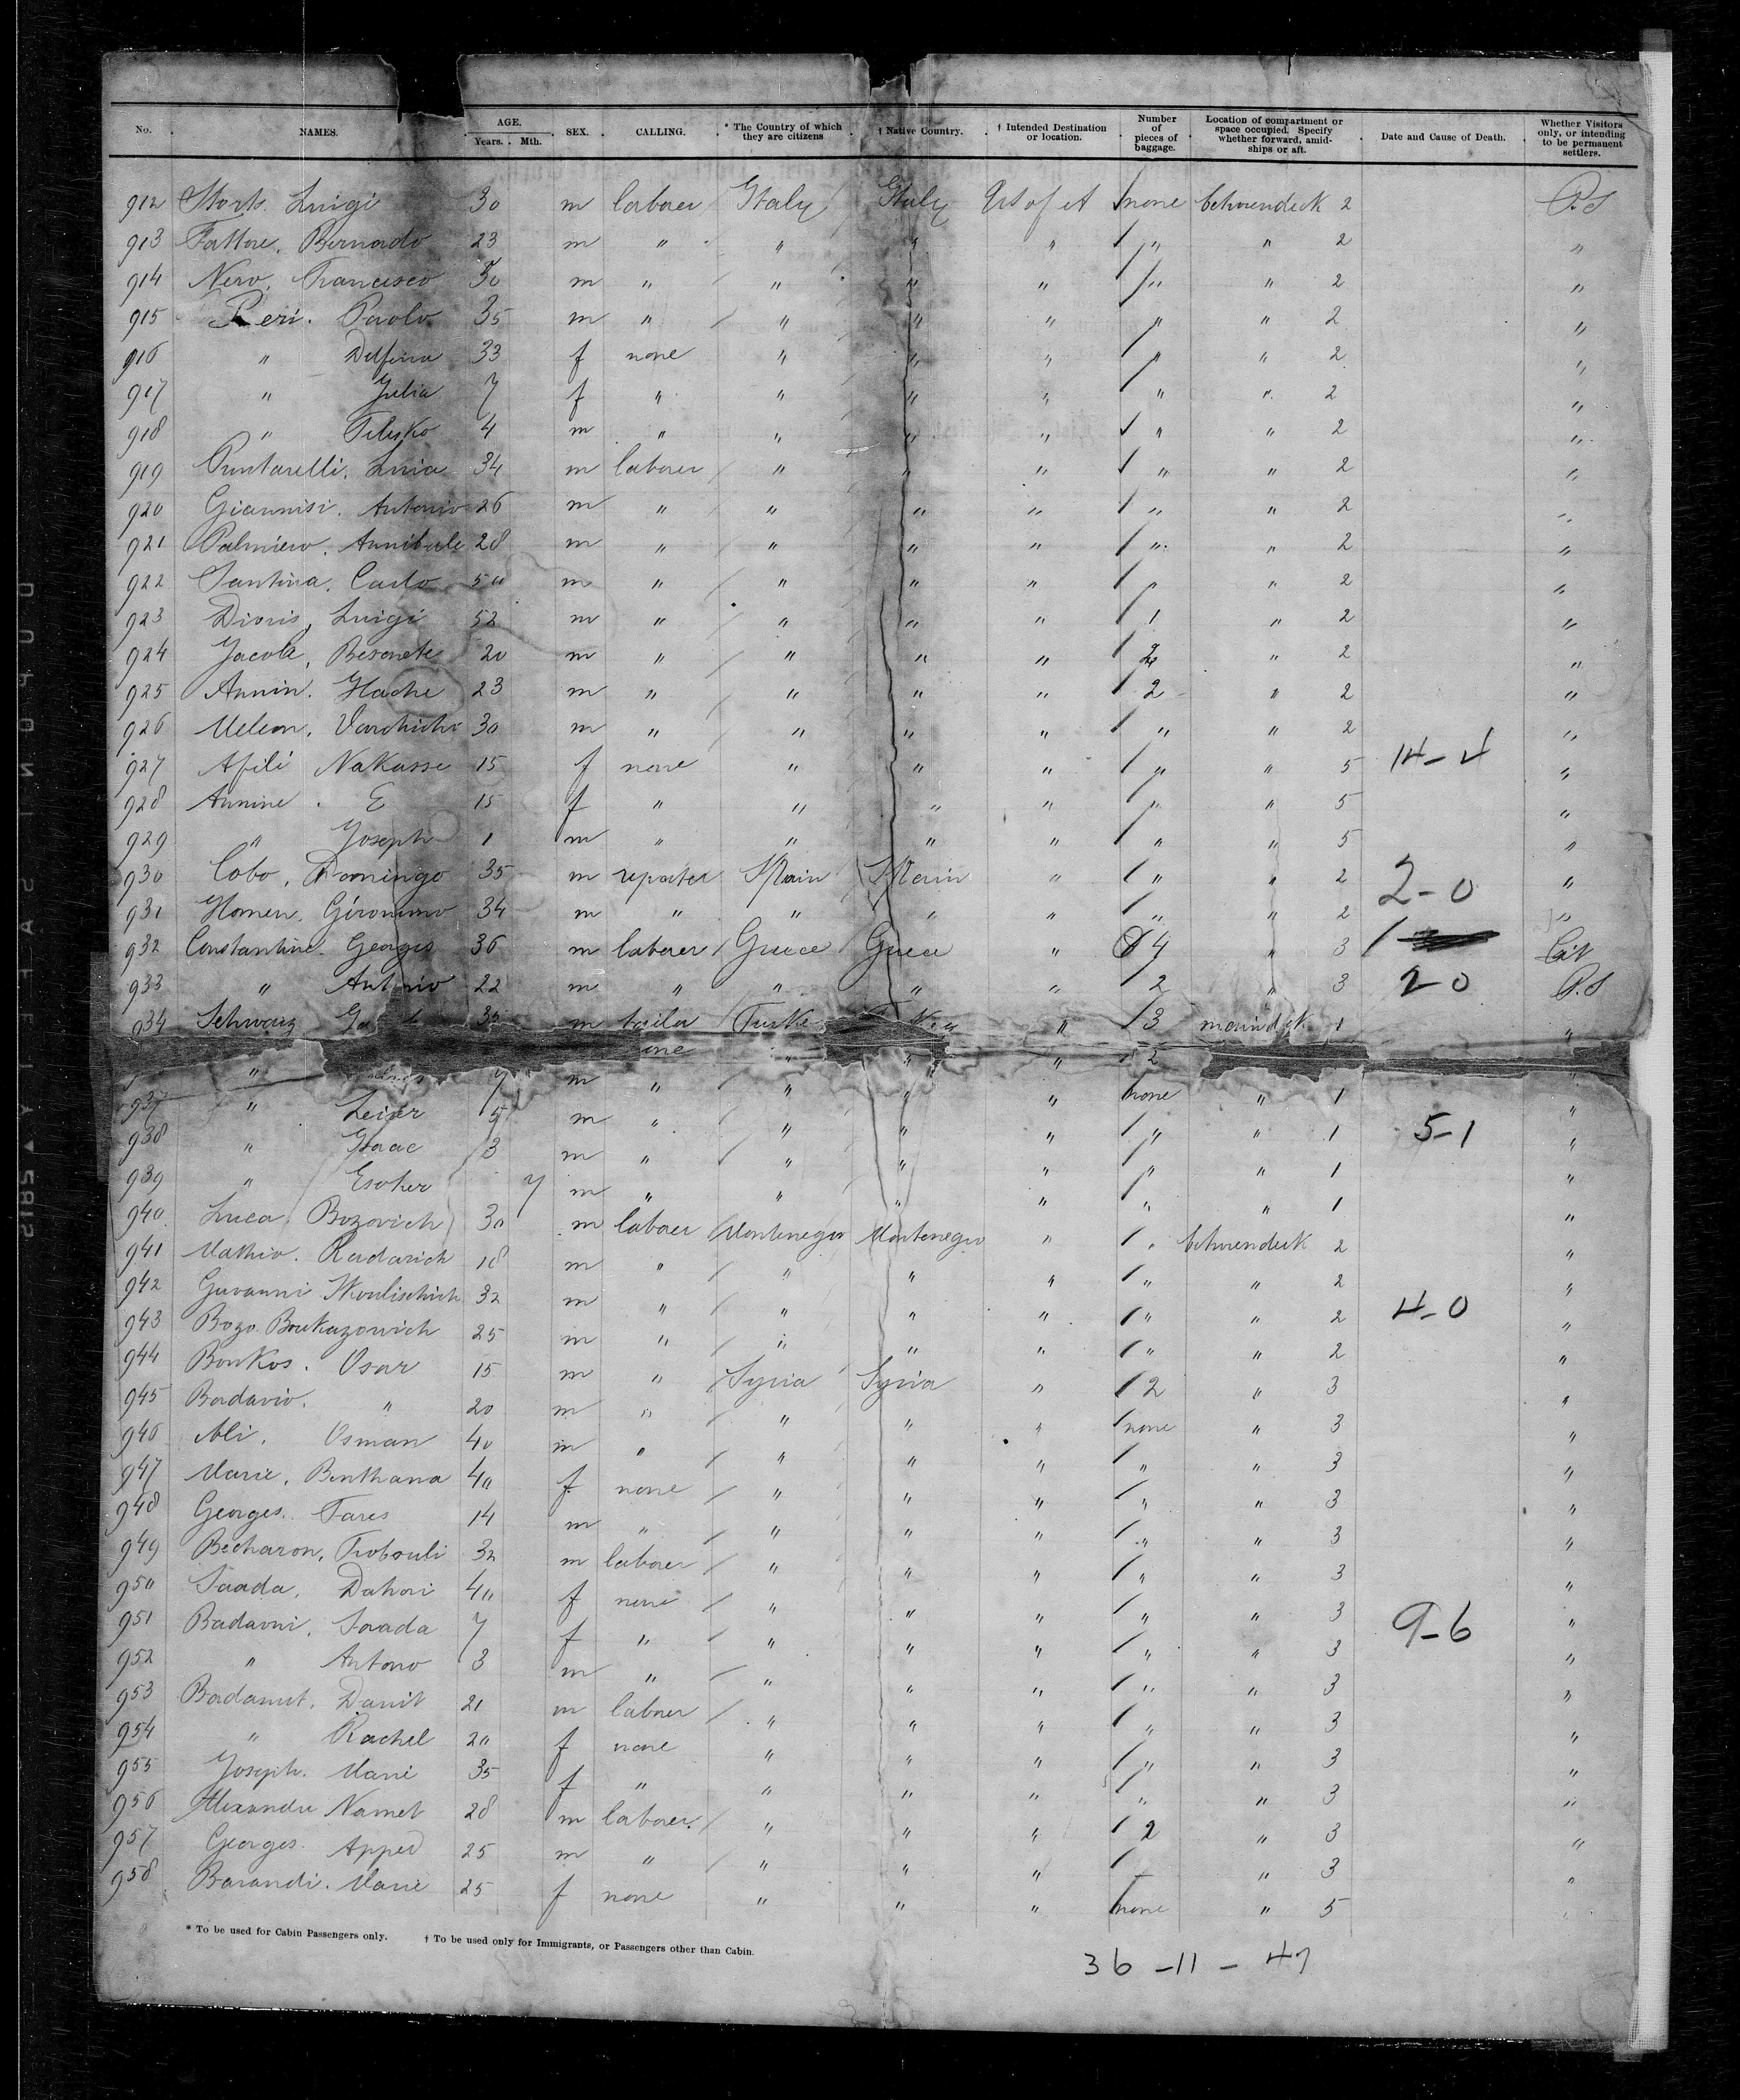 No. NAMES. AGE. Years. Mth. SEX. CALLING. * The Country of which they are citizens † Native Country. † Intended Destination or location. Number of pieces of baggage. Location of compartment or space occupied. Specify whether forward, amidships or aft. Date and Cause of Death. Whether Visitors only, or intending to be permanent settlers.
912 Luigi 30 m laborer Italy Italy US of A none betweendeck 2 P.S
913 Fattore, Bernardo 23 m " " " " " " 2 "
914 Nero, Francesco 30 m " " " " " " 2 "
915 Peri. Paolo 35 m " " " " " " 2 "
916 " Delfina 33 f none " " " " " 2 "
917 " Julia 7 f " " " " " " 2 "
918 " 4 m " " " " " " 2 "
919 Puntarelli. 34 m laborer " " " " " 2 "
920 Giannisi. Antonio 26 m " " " " " " 2 "
921 Palmiero. Annibale 28 m " " " " " " 2 "
922 Santina. Carlo 50 m " " " " " " 2 "
923 Luigi 52 m " " " " 1 " 2 "
924 Jacob, 20 m " " " " 2 " 2 "
925 Annin. Hache 23 m " " " " 2 " 2 "
926 30 m " " " " " " 2 "
927 Afili Nakasse 15 f none " " " " " 5 14-4 "
928 Annine. E 15 f " " " " " " 5 "
929 " Joseph 1 m " " " " " " 5 "
930 Cobo, Domingo 35 m reporter Spain Spain " " " 2 2-0 "
931 Homen, Gironimo 34 m " " " " " " 2 "
932 Constantine. Georges 36 m laborer Greece Greece " 4 " 3 1 Cit
933 " Antonio 22 m " " " " 2 " 3 2-0 P.S
934 Schwarz 35 m tailor " 3 maindek 1 "
" " " 2
" 7 m " " " " none " 1 "
937 " Leiser 5 m " " " " " " 1 5-1 "
938 " Isaac 3 m " " " " " " 1 "
939 " 7 m " " " " " " 1 "
940 Luca, Bozovich 30 m laborer Montenegro Montenegro " " betweendeck 2 "
941 Mathio. Radarich 18 m " " " " " " 2 "
942 Giovanni 32 m " " " " " " 2 4-0 "
943 Bozo. 25 m " " " " " " 2 "
944 Boukos. Osar 15 m " Syria Syria " 2 " 3 "
945 Badavio. " 20 m " " " " none " 3 "
946 Ali, Osman 40 m " " " " " " 3 "
947 Marie, Benthana 40 f none " " " " " 3 "
948 Georges. Fares 14 m " " " " " " 3 "
949 Becharon, 32 m laborer " " " " " 3 "
950 Saada, Dahori 40 f none " " " " " 3 "
951 Badavni, Saada 7 f " " " " " " 3 9-6 "
952 " Antono 3 m " " " " " " 3 "
953 Badanut. 21 m laborer " " " " " 3 "
954 " Rachel 20 f none " " " " " 3 "
955 Joseph. Marie 35 f " " " " " " 3 "
956 Alexandre Namet 28 m laborer " " " 2 " 3 "
957 Georges. 25 m " " " " " 3 "
958 Barandi. Marie 25 f none " " " none " 5 "
* To be used for Cabin Passengers only. † To be used only for Immigrants, or Passengers other than Cabin.
36 - 11 - 47